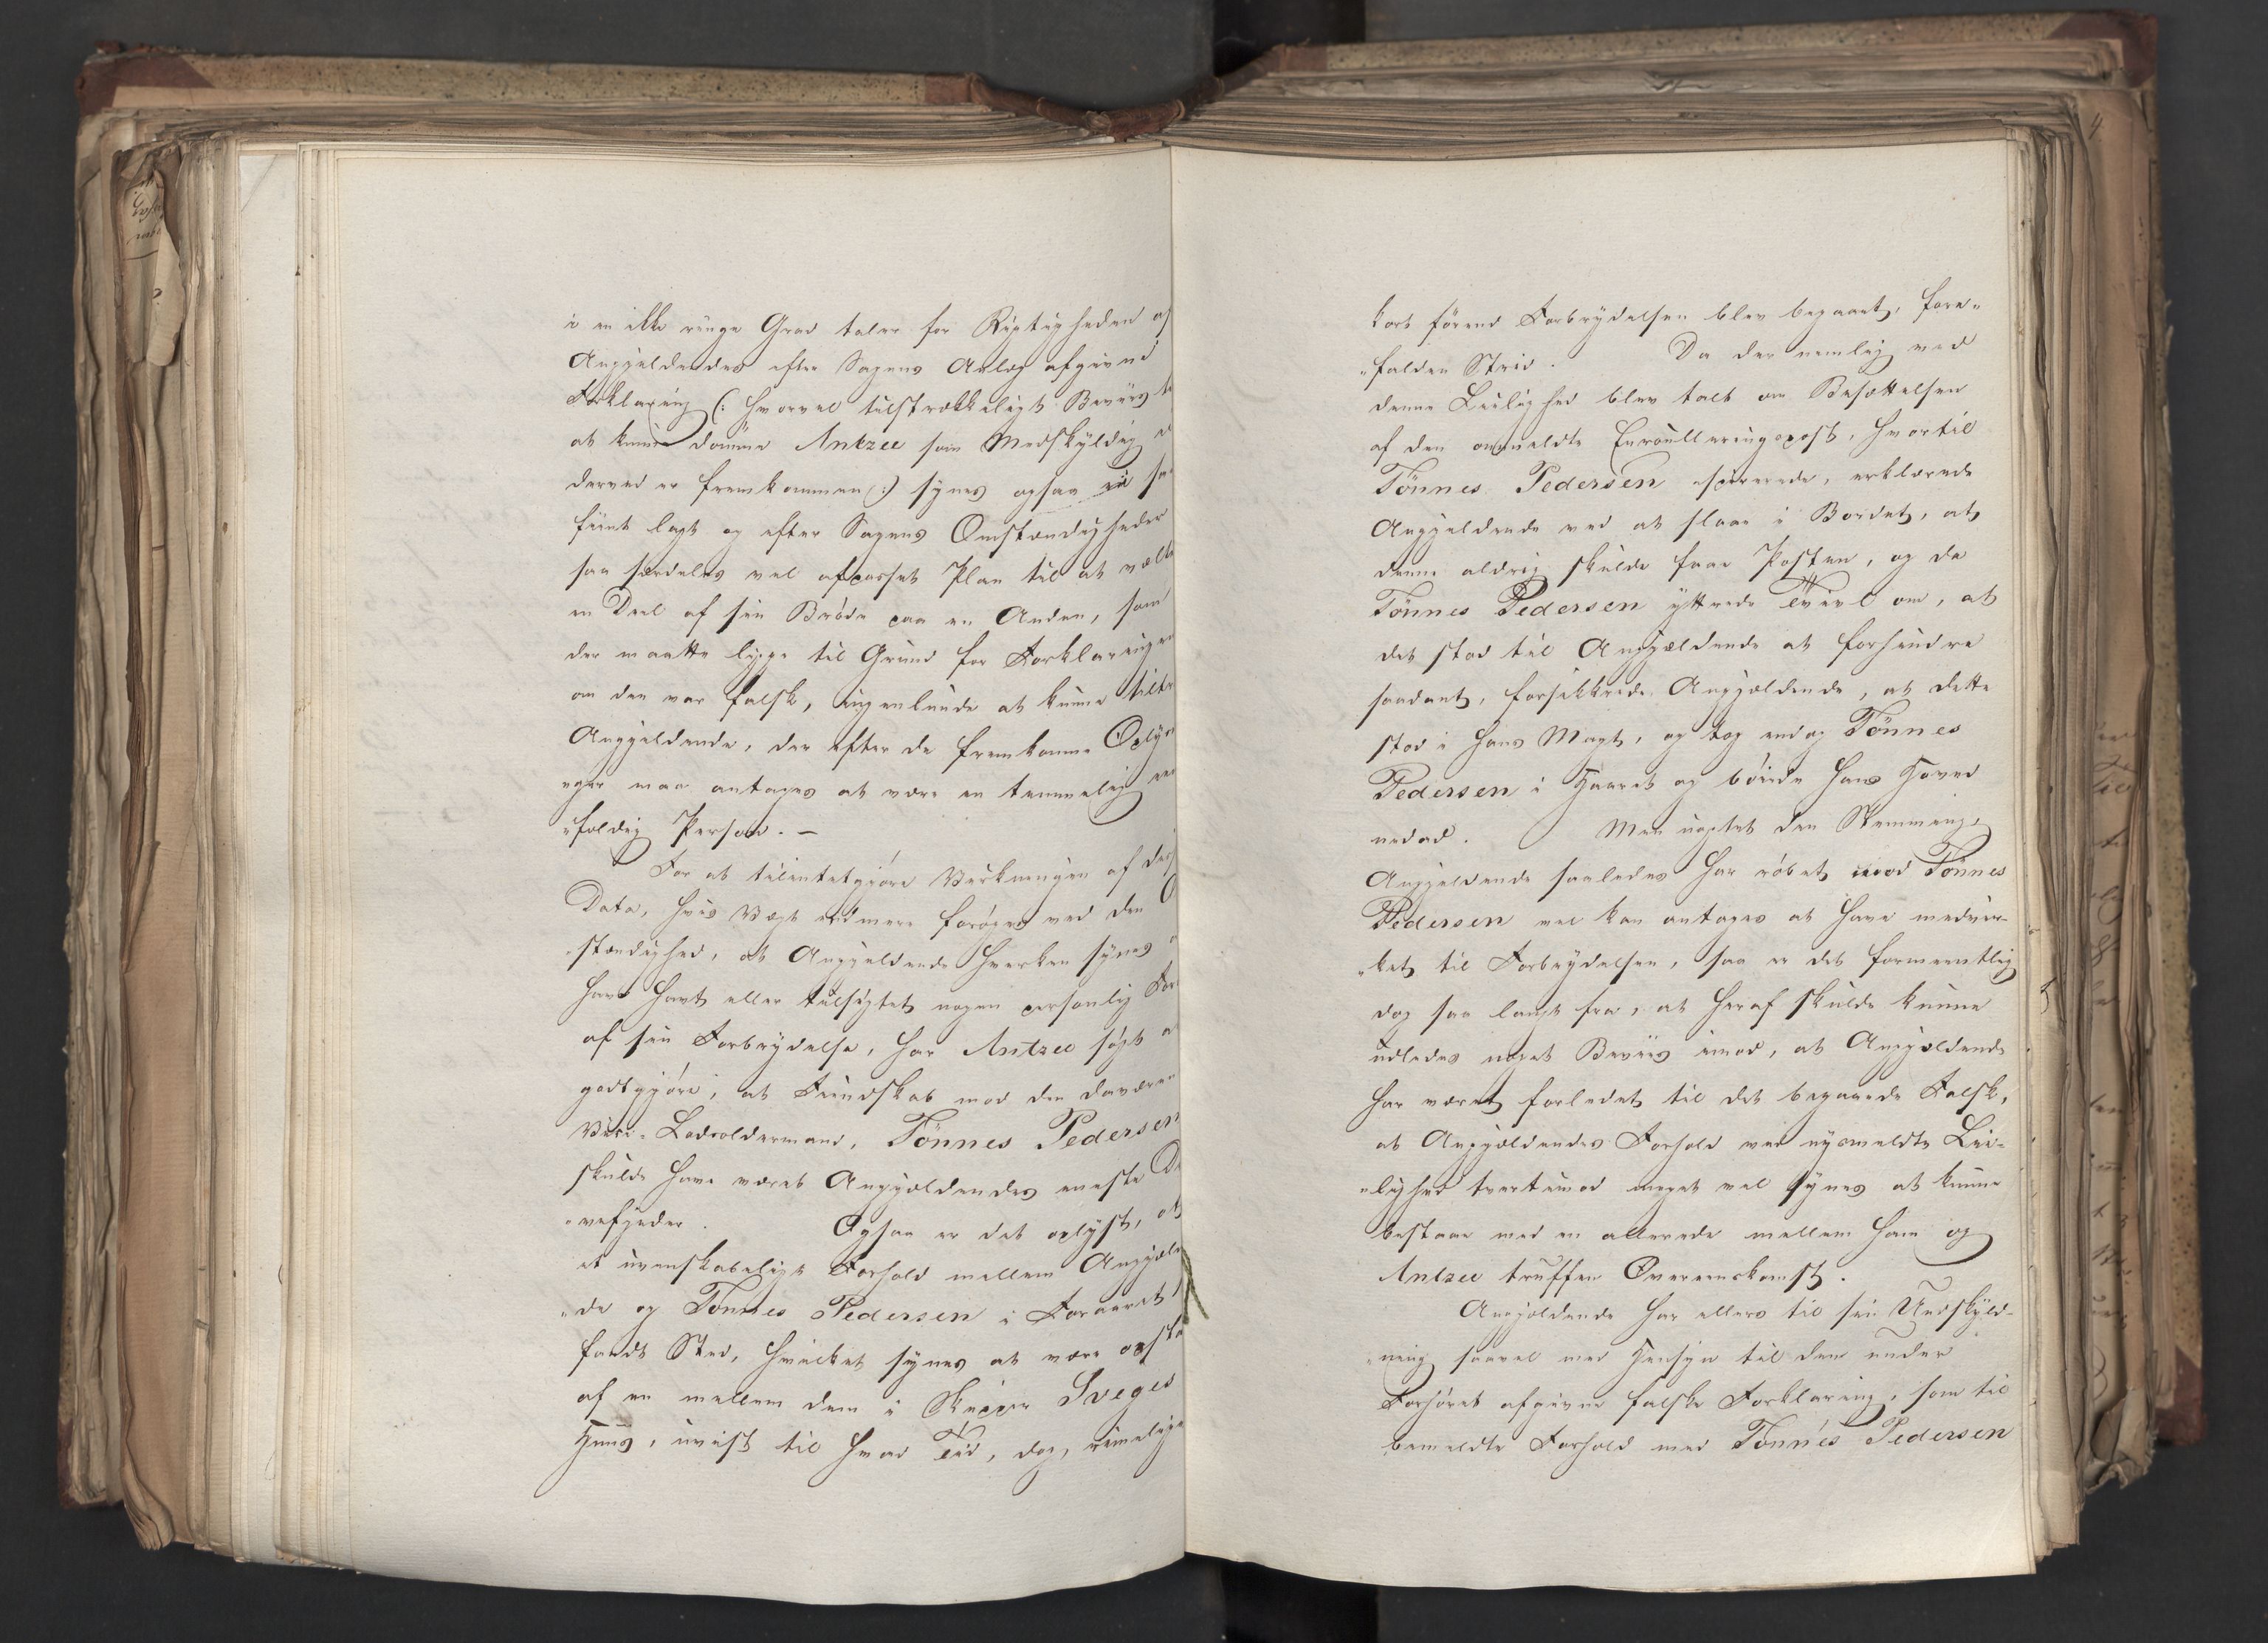 i en ikke ringe Grad taler for Rigtigheden af
Angjeldendes efter Sagens Anlæg afgivne
Forklaring (: hvorvel tilstrækkeligt Beviis t
at kunne dømme Antzee som Medskyldig e
derved er fremkommen :) synes ogsaa en sa
fiint lagt og efter Sagens Omstændigheder
saa særdeles vel afpasset Plan til at vælte
en Deel af sin Brøde paa en Anden, som
der maatte ligge til Grund for Forklaringen
om den var falsk, ingenlunde at kunne tiltr
Angjeldende, der efter de fremkomne Oplys
"ger maa antages at være en temmelig een
"foldig Person. —
For at tilintetgjøre Virkningen af disse
Data, hvis Vægt end mere forøges ved den O
"stændighed, at Angjeldende hverken synes a
have havt eller tilsigtet nogen personlig For
af sin Forbrydelse, har Antzee søgt a
godtgjøre, at Fiendskab mod den daværen
Vice-Lodsoldermand, Tönnes Pedersen
skulde have været Angjældendes eneste D
"vefjeder. Ogsaa er det oplyst, at
et uvenskabeligt Forhold mellem Angjæld
"de og Tönnes Pedersen i Foraaret
fandt Sted, hvilket synes at være opsta
af en mellem dem i Skipper Sveges
Huus, uvist til hvad Tid, dog, rimelig
kort førend Forbrydelsen blev begaaet, fore"
"falden Strid. Da der nemlig ved
denne Leilighed blev talt om Besættelsen
af den ommeldte Enroulleringspost, hvortil
Tönnes Pedersen aspirerede, erklærede
Angjeldende ved at slaae i Bordet, at
denne aldrig skulde faae Posten, og da
Tönnes Pedersen yttrede Tvivl om, at
det stod til Angjældende at forhindre
saadant, forsikkrede Angjældende, at dette
stod i hans Magt, og tog endog Tönnes
Pedersen i Haaret og bøiede hans Hoved
nedad. Men uagtet den Stemning,
Angjeldende saaledes har røbet imod Tönnes
Pedersen vel kan antages at have medvir-
"ket til Forbrydelsen, saa er det formeentlig
dog saa langt fra, at heraf skulde kunne
udledes noget Beviis imod, at Angjældende
har været forledet til det begaaede Falsk,
at Angjældendes Forhold ved nysmeldte Lei-
"lighed tvertimod meget vel synes at kunne
bestaae med en allerede mellem ham og
Antzee truffen Overeenskomst.
Angjældende har ellers til sin Undskyld-
"ning saavel med Hensyn til den under
Forhøret afgivne falske Forklaring, som til
bemeldte Forhold med Tönnes Pedersen